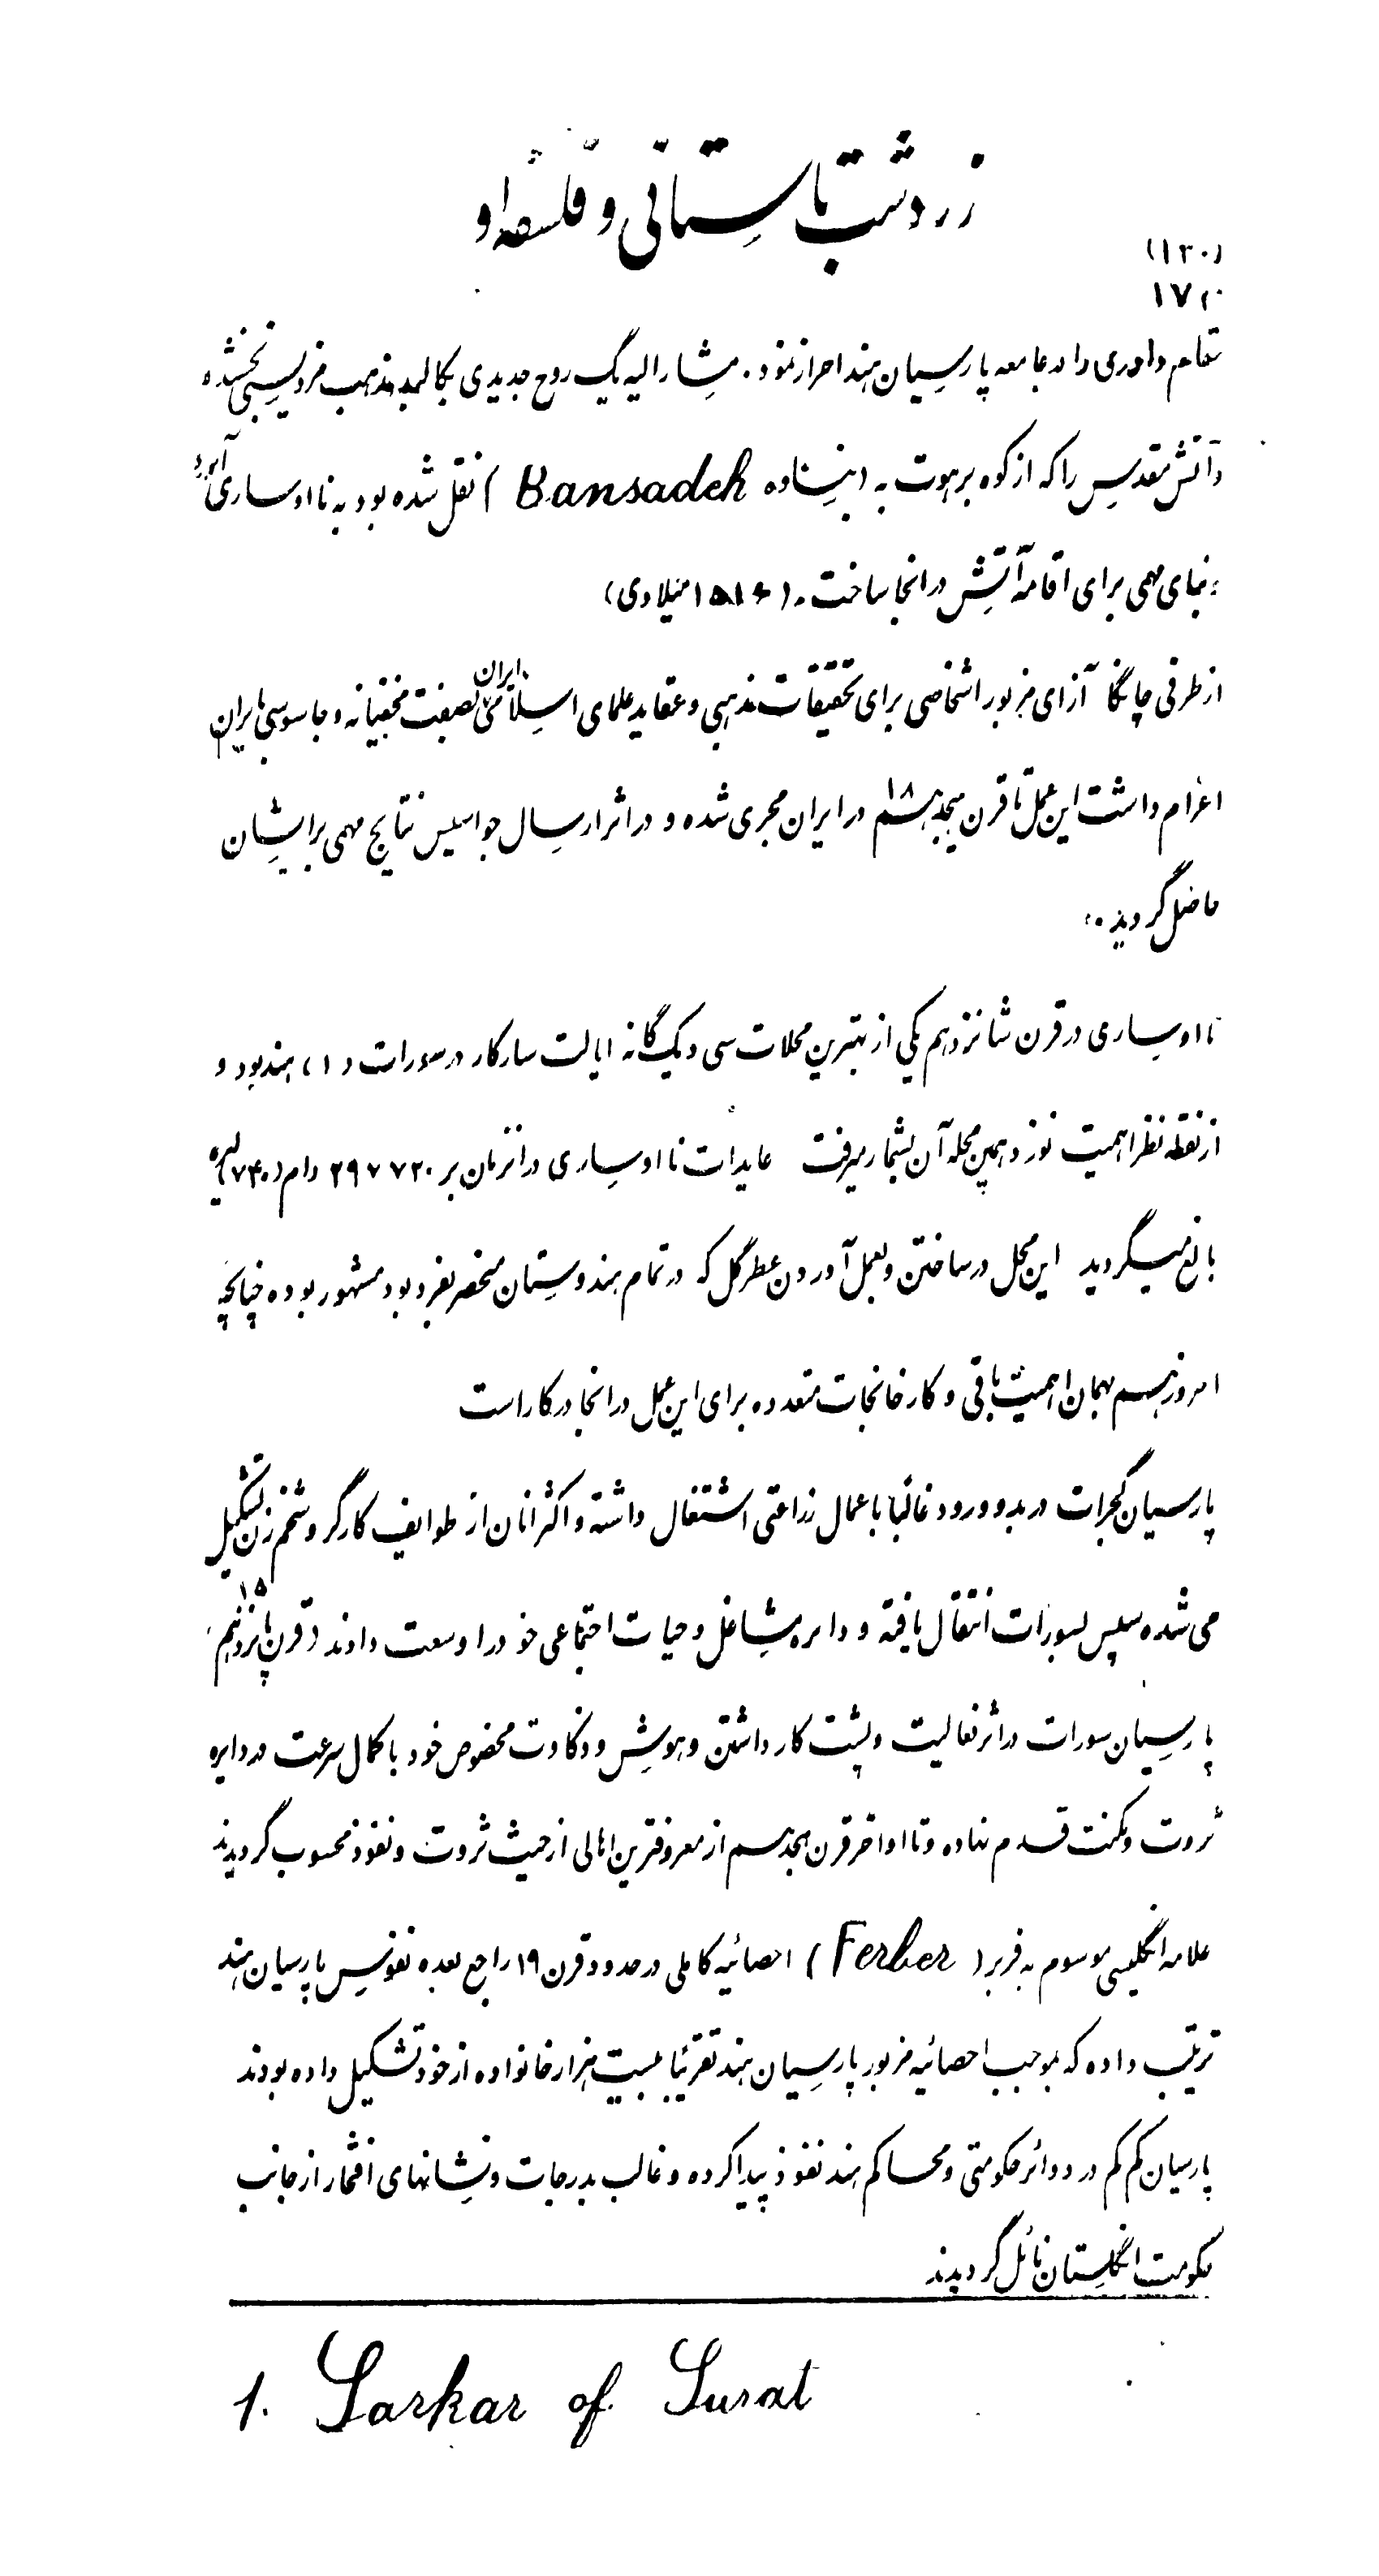 زردشت باستانی و فلسفه او
(۱۳۰)
۱۷۰
مقام داوری را در جامعه پارسیان هند احراز نمود. مشارالیه یک روح جدیدی بکالبد مذهب مزدیسنی بخشیده
وآتش مقدس را که از کوه برهوت به (بنساده Bansadeh) نقل شده بود به نااوساری آورد
و بنای مهمی برای اقامه آتش در انجا ساخت. (۱۵۱۶ میلادی)
از طرفی چانگا آزای مزبور اشخاصی برای تحقیقات مذهبی و عقاید علمای اسلامی ایران بصفت مخفیانه و جاسوسی بایران
اعزام داشت این عمل تا قرن هیجدهم ۱۸ در ایران مجری شده و در اثر ارسال جواسیس نتایج مهمی برایشان
حاصل گردید.
نااوساری در قرن شانزدهم یکی از بهترین محلات سی و یک گانه ایالت سارکار در سورات (۱) هند بود و
از نقطه نظر اهمیت نوزدهمین محله آن بشمار میرفت عایدات نااوساری در انزمان بر ۲۹۷۷۲۰ دام (۷۴۰) لیره
بالغ میگردید این محل در ساختن و بعمل آوردن عطر گل که در تمام هندوستان منحصر بفرد بود مشهور بوده چنانچه
امروز هم بهمان اهمیت باقی و کارخانجات متعدده برای این عمل در انجا در کار است
پارسیان گجرات در بدو ورود غالبا باعمال زراعتی اشتغال داشته و اکثر انان از طوایف کارگر و شخم زن تشکیل
می شده سپس بسورات انتقال یافته و دایره مشاغل و حیات اجتماعی خود را وسعت دادند (قرن پانزدهم ۱۵
پارسیان سورات در اثر فعالیت و پشت کار داشتن و هوش و ذکاوت مخصوص خود با کمال سرعت در دایره
ثروت و مکنت قدم نهاده و تا اواخر قرن هیجدهم از معروفترین اهالی از حیث ثروت و نفوذ محسوب گردیدند
علامه انگلیسی موسوم به فربر (Ferber) احصائیه کاملی در حدود قرن ۱۹ راجع بعده نفوس پارسیان هند
ترتیب داده که بموجب احصائیه مزبور پارسیان هند تقریبا بیست هزار خانواده از خود تشکیل داده بودند
پارسیان کم کم در دوائر حکومتی و محاکم هند نفوذ پیدا کرده و غالب بدرجات و نشانهای افتخار از جانب
حکومت انگلستان نائل گردیدند
1. Sarkar of Surat